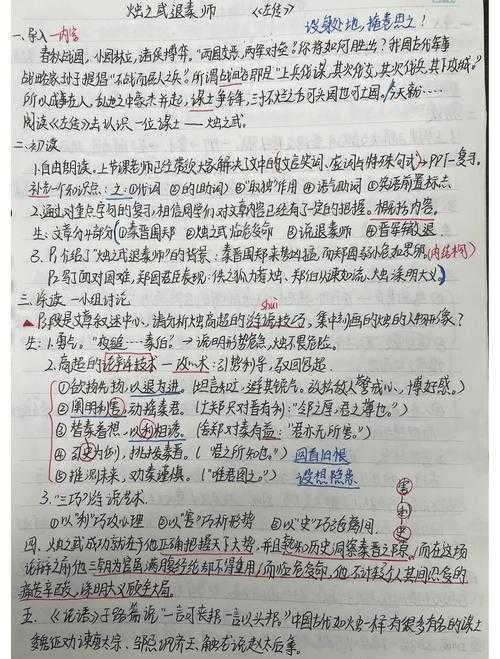 烛之武退秦师 《左传》
设身处地,揣意思之!
一、导入—内容
春秋战国,小国林立,诸侯搏弈。"两国交恶,两军对垒。你将如何胜出?我国古代军事
战略家孙子提倡"不战而屈人之兵。"所谓战略即是"上兵伐谋,其次伐交,其次伐兵,其下攻城。"
所以成事在人,乱世之中豪杰并起,谋士争锋,三寸不烂之舌可兴国也可亡国。今天就……
阅读《左传》去认识一位谋士——烛之武。
二、初读
1.自由朗读。上节课老师已经带领大家解决了文中的文言实词、虚词与特殊句式→PPT—复习。
补充一个知识点:之:①代词 ②的(助词) ③取独作用 ④语气助词 ⑤宾语前置标志
2.通过对重点字句的复习,相信同学们对文章内容已经有了一定的把握。概括内容。
生:文章分4部分 ①秦晋围郑 ②烛之武临危受命 ③说退秦师 ④晋军撤退
3. P1介绍了"烛之武退秦师"的背景:秦晋围郑来势凶猛,而郑国弱小危如累卵。(内忧外困)
P2写了面对困难,郑国君臣表现:佚之狐力荐烛、郑伯从谏如流、烛深明大义。
三、深读—小组讨论
shuì
▲P3段是文章叙述中心,请分析烛高超的游说技巧,集中刻画的烛的人物形象?
生:1.勇气。"夜缒……秦伯?→说明形势危急,烛不畏危险。
2.高超的论辩技术—攻心术:引势利导,敌回恩退.
①欲扬先抑,以退为进。(坦言知亡,避其锐气。放松敌人警戒心,博好感。)
②阐明利害,动摇秦君。(亡郑只对晋有利:"邻之厚,君之薄也。")
③替秦着想,以利相诱。(舍郑对秦有益:"君亦无所害。")
④引史为例,挑拨秦晋。("君之所知也。") 因有旧恨
⑤推测未来,劝秦谨慎。("唯君图之。") 设想隐患
3."三巧"游说艺术.
①以"利"巧攻心理 ②以"害"巧析形势 ③以"史"巧治离间
害
利
史
四、烛之武成功就在于他正确把握天下大势,并且熟知历史洞察秦晋之隙。而在这场
论辩之前他三朝为官虽满腹经纶却不得重用,而临危受命,他不计较个人其间忍受的
痛苦辛酸,深明大义顾全大局。
五、《论语》子路篇说"一言可丧邦一言以兴邦。"中国古代如烛一样有很多有名的谋士
魏征劝谏唐太宗、邹忌讽齐王、触龙说赵太后等。